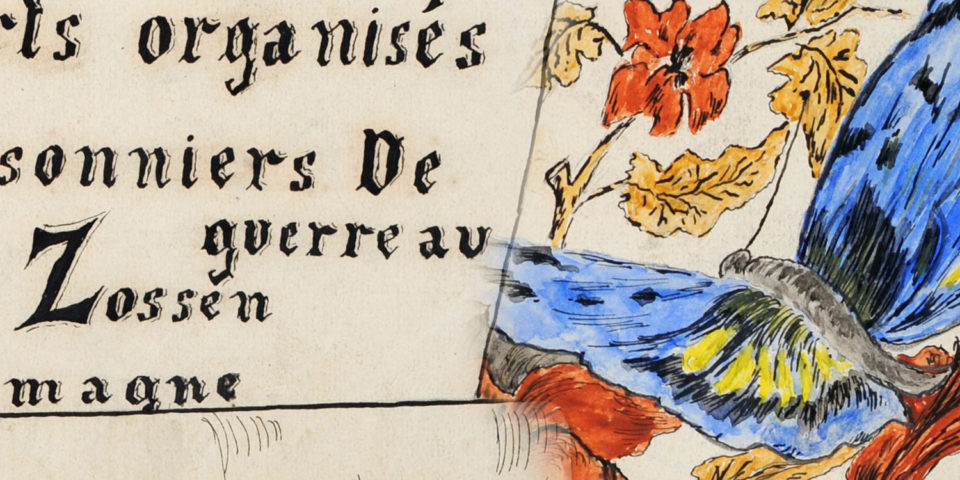 rts organisés
sonniers De
guerre au
Zossen
magne